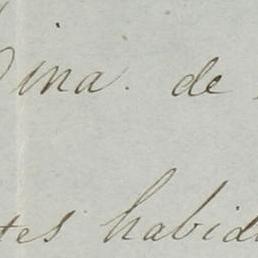 ina. de
tes habid